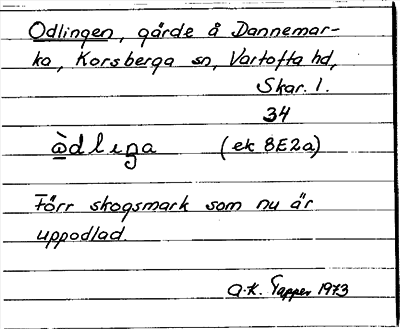 Odlingen, gärde å Dannemar-
ka, Korsberga sn, Vartofta hd,
Skar. l.
34
ὼdliŋa (ek 8E2a)
Förr skogsmark som nu är
uppodlad.
A.K. Tapper 1973